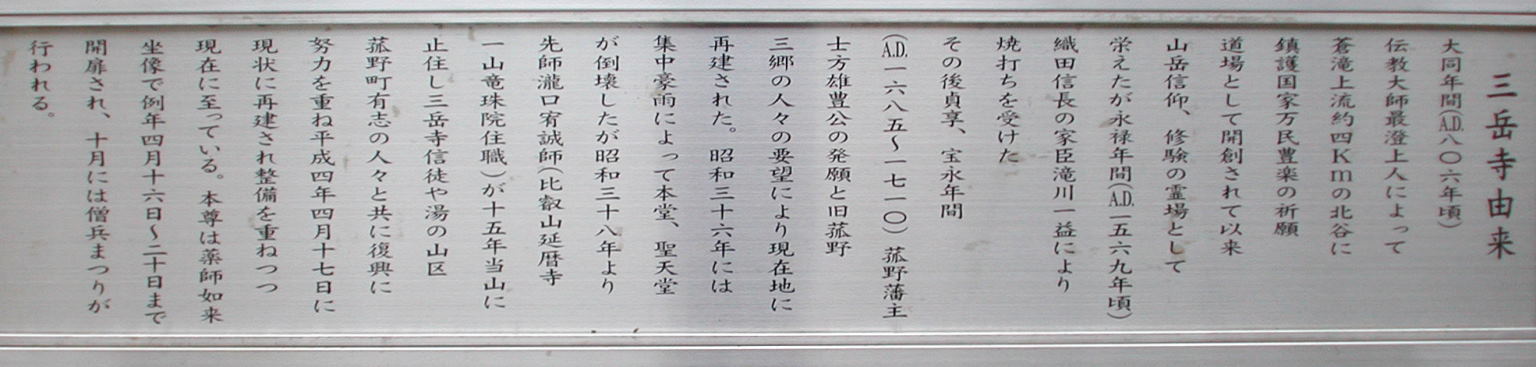 三岳寺由来
大同年間(A.D.八〇六年頃)
伝教大師最澄上人によって
蒼滝上流約四Kmの北谷に
鎮護国家万民豊楽の祈願
道場として開創されて以来
山岳信仰、修験の霊場として
栄えたが永禄年間(A.D.一五六九年頃)
織田信長の家臣滝川一益により
焼打ちを受けた
その後貞享、宝永年間
(A.D.一六八五〜一七一〇)菰野藩主
土方雄豊公の発願と旧菰野
三郷の人々の要望により現在地に
再建された。昭和三十六年には
集中豪雨によって本堂、聖天堂
が倒壊したが昭和三十八年より
先師瀧口宥誠師(比叡山延暦寺
一山竜珠院住職)が十五年当山に
止住し三岳寺信徒や湯の山区
菰野町有志の人々と共に復興に
努力を重ね平成四年四月十七日に
現状に再建され整備を重ねつつ
現在に至っている。本尊は薬師如来
坐像で例年四月十六日〜二十日まで
開扉され、十月には僧兵まつりが
行われる。